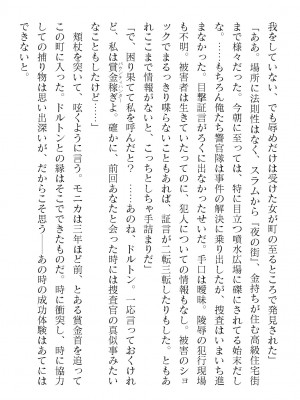 我をしていない、でも辱めだけは受けた女が町の至るところで発見された」
「ああ。場所に法則性はなく、スラムから『夜の街』、金持ちが住む高級住宅街
まで様々だった。今朝に至っては、特に目立つ噴水広場に磔にされてる始末だし
な。……もちろん俺たち警官隊は事件の解決に乗り出したが、捜査はいまいち進
まなかった。目撃証言がろくに出なかったせいだ。手口は曖昧。陵辱の犯行現場
も不明。被害者は生きていたってのに、犯人についての情報もなし。被害のショ
ックでまるっきり喋らないこともあれば、証言が二転三転したりもした。ともあ
れここまで情報がないと、こっちとしちゃ手詰まりだ」
「で、困り果てて私を呼んだと？　……あのね、ドルトン。一応言っておくけれ
ど、私は賞金稼ぎよ。確かに、前回あなたと会った時には捜査官の真似事みたい
なこともしたけど……」
頬杖を突いて、呟くように言う。モニカは三年ほど前、とある賞金首を追って
この町に入った。ドルトンとの縁はそこでできたものだ。時に衝突し、時に協力
しての捕り物は思い出深いが、だからこそ思う――あの時の成功体験はあてには
できないと。